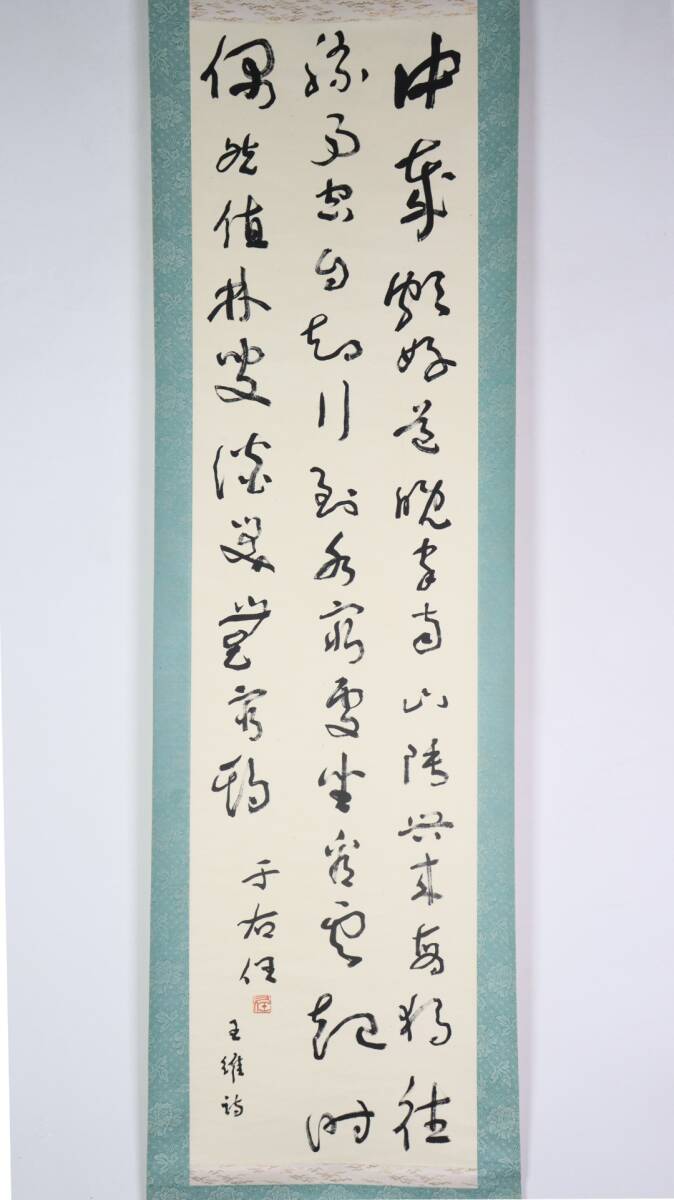 中歲頗好道晚家南山陲興來每獨往
勝事空自知行到水窮處坐看雲起時
偶然值林叟談笑無還期
于右任
王維詩